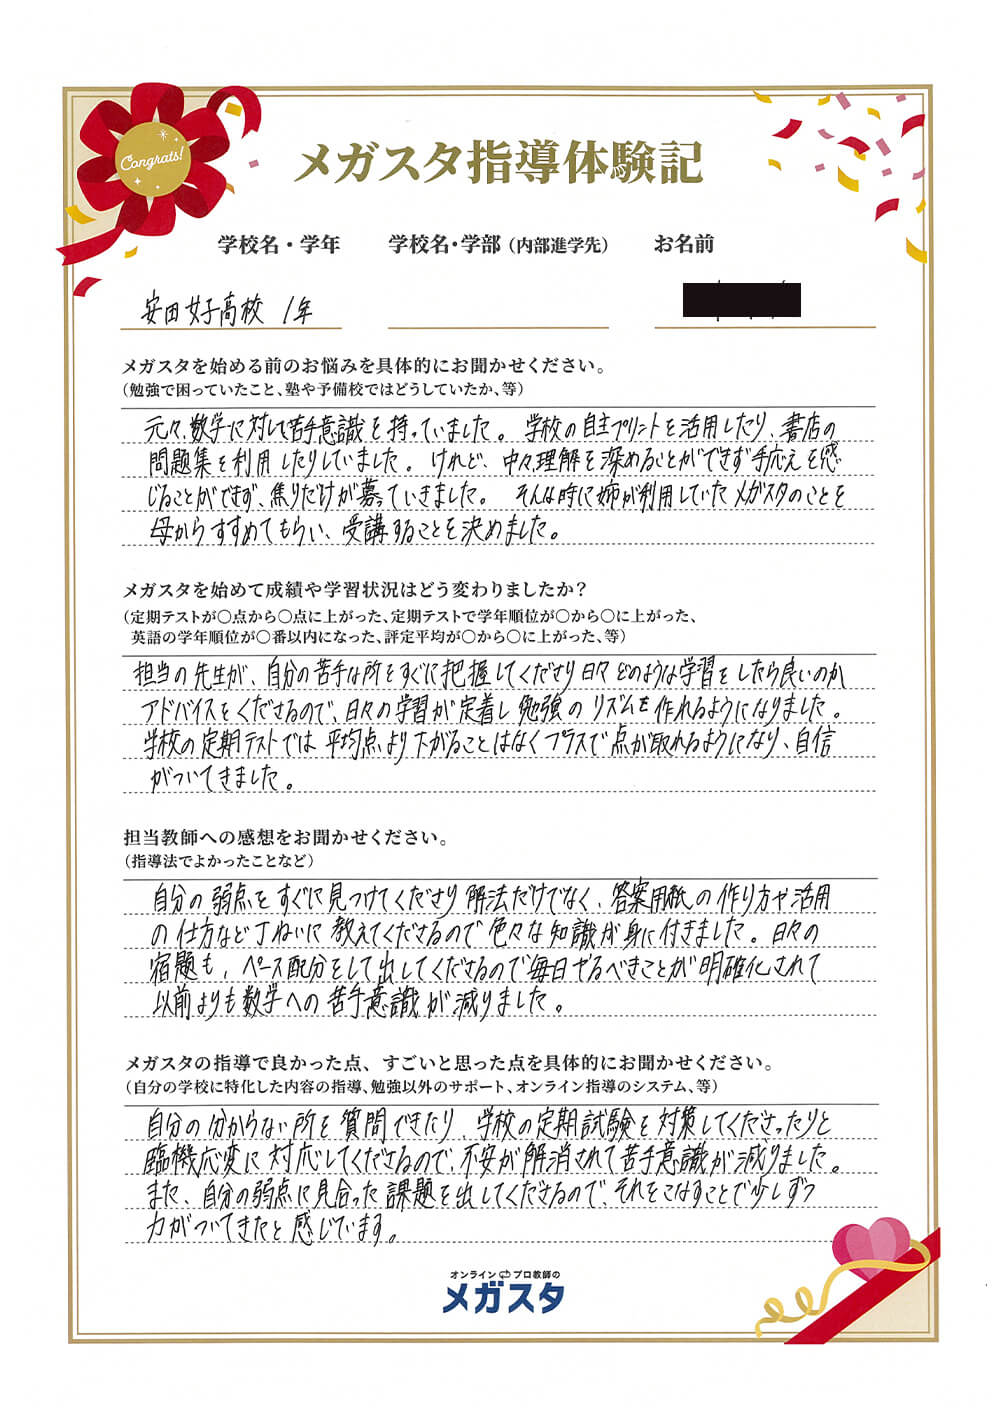 Congrats!
メガスタ指導体験記
学校名・学年 学校名・学部（内部進学先） お名前
安田女子高校 1年
メガスタを始める前のお悩みを具体的にお聞かせください。
（勉強で困っていたこと、塾や予備校ではどうしていたか、等）
元々、数学に対して苦手意識を持っていました。学校の自主プリントを活用したり、書店の
問題集を利用したりしていました。けれど、中々理解を深めることができず手応えを感
じることができず、焦りだけが募っていきました。そんな時に姉が利用していたメガスタのことを
母からすすめてもらい、受講することを決めました。
メガスタを始めて成績や学習状況はどう変わりましたか？
（定期テストが〇点から〇点に上がった、定期テストで学年順位が〇から〇に上がった、
英語の学年順位が〇番以内になった、評定平均が〇から〇に上がった、等）
担当の先生が、自分の苦手な所をすぐに把握してくださり日々どのような学習をしたら良いのか
アドバイスをくださるので、日々の学習が定着し勉強のリズムを作れるようになりました。
学校の定期テストでは平均点より下がることはなくプラスで点が取れるようになり、自信
がついてきました。
担当教師への感想をお聞かせください。
（指導法でよかったことなど）
自分の弱点をすぐに見つけてくださり解法だけでなく、答案用紙の作り方や活用
の仕方など丁ねいに教えてくださるので色々な知識が身に付きました。日々の
宿題も、ペース配分をして出してくださるので毎日やるべきことが明確化されて
以前よりも数学への苦手意識が減りました。
メガスタの指導で良かった点、すごいと思った点を具体的にお聞かせください。
（自分の学校に特化した内容の指導、勉強以外のサポート、オンライン指導のシステム、等）
自分の分からない所を質問できたり、学校の定期試験を対策してくださったりと
臨機応変に対応してくださるので、不安が解消されて苦手意識が減りました。
また、自分の弱点に見合った課題を出してくださるので、それをこなすことで少しずつ
力がついてきたと感じています。
オンライン プロ教師の
メガスタ